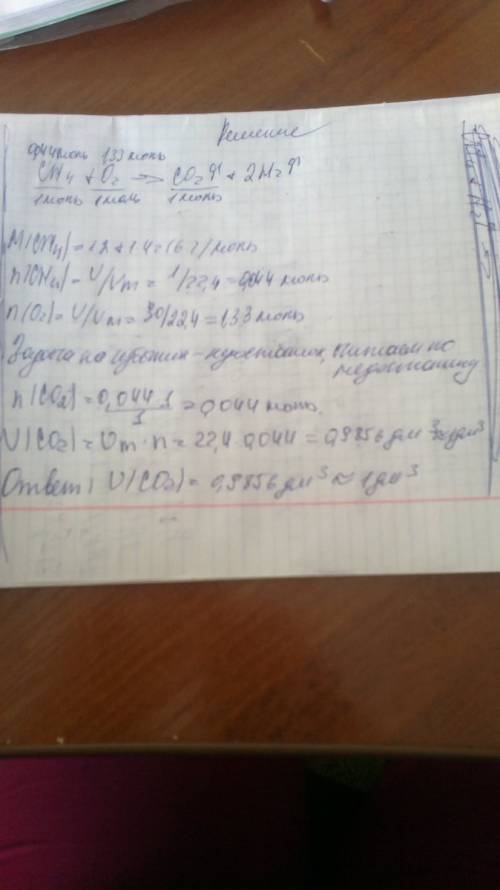 Решение
0,044 моль 1,33 моль
CH4 + O2 → CO2↑ + 2H2↑
1 моль 1 моль 1 моль
M(CH4) = 12+1·4=16 г/моль
n(CH4) = V/Vm = 1/22,4 = 0,044 моль
n(O2) = V/Vm = 30/22,4 = 1,33 моль
Задача на избыток-недостаток, считаем по
недостатку
n(CO2) = 0,044·1/1 = 0,044 моль.
V(CO2) = Vm·n = 22,4·0,044 = 0,9856 дм³ ≈ 1 дм³
Ответ: V(CO2) = 0,9856 дм³ ≈ 1 дм³